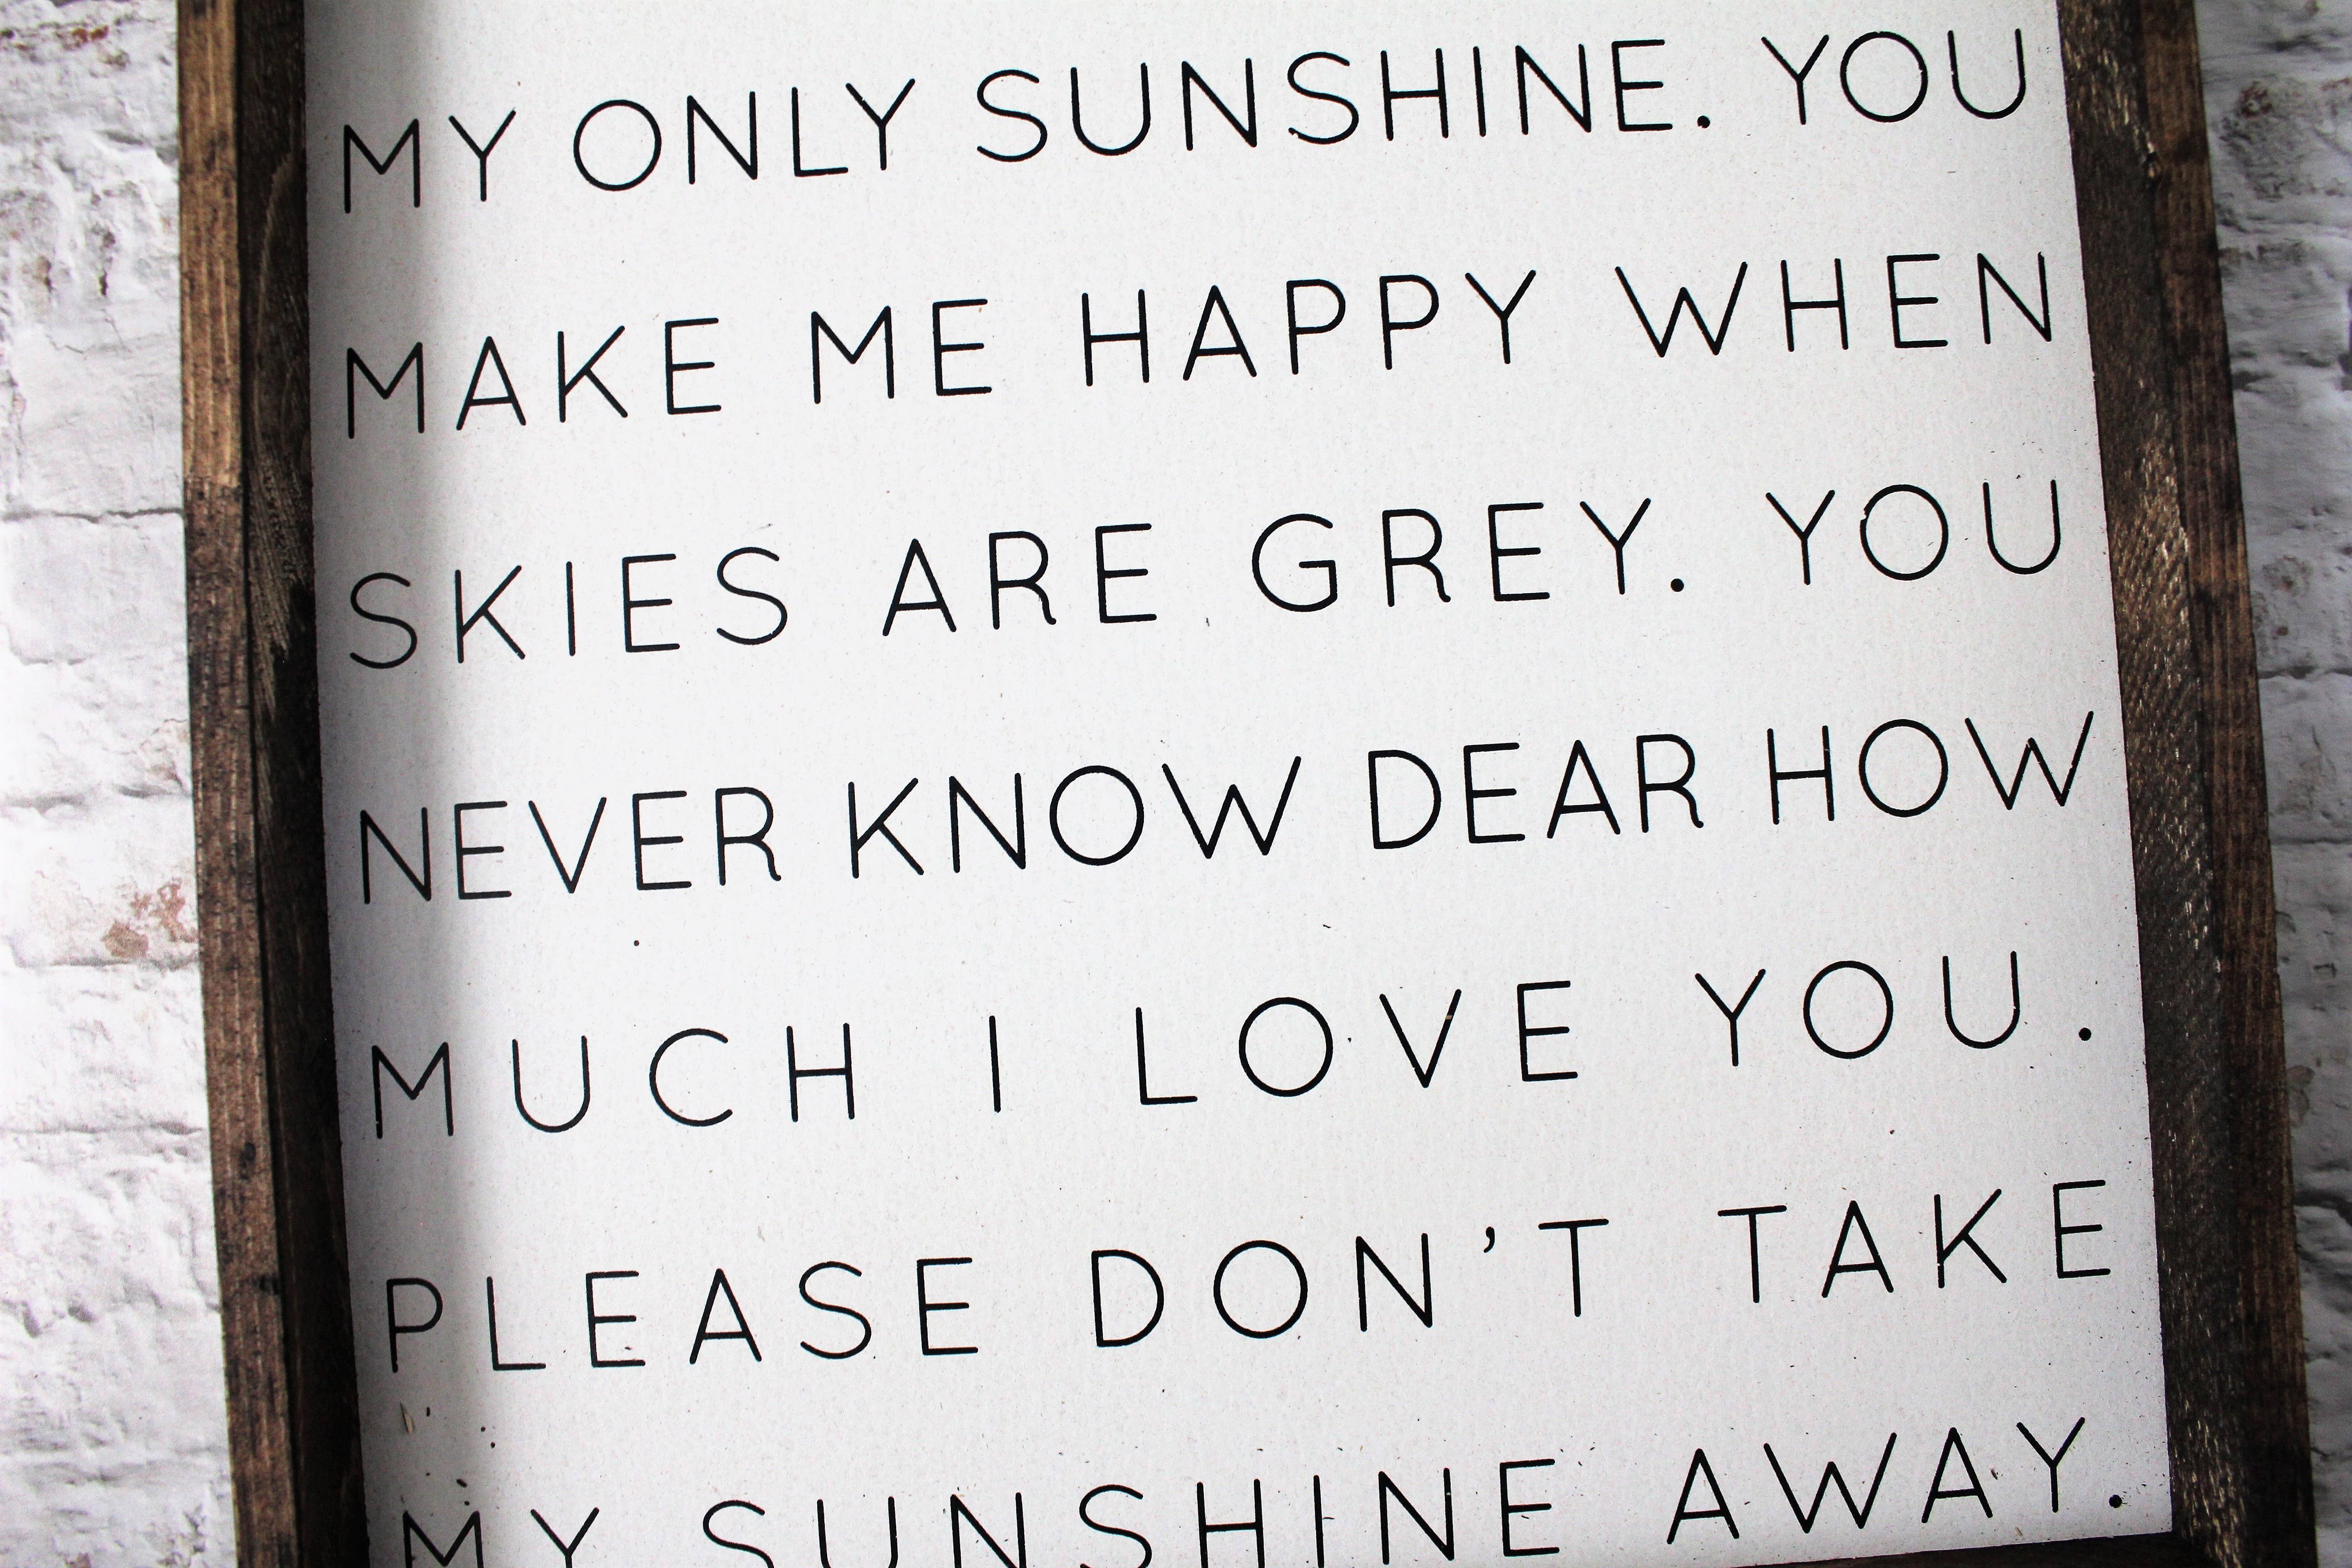 MY ONLY SUNSHINE. YOU
MAKE ME HAPPY WHEN
SKIES ARE GREY. YOU
NEVER KNOW DEAR HOW
MUCH I LOVE YOU.
PLEASE DON'T TAKE
MY SUNSHINE AWAY.